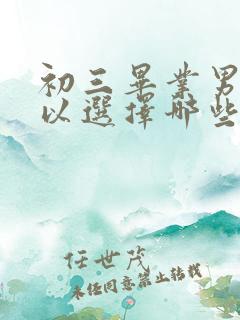 初三畢業男
以選擇哪些
任世茂
未经同意禁止转载